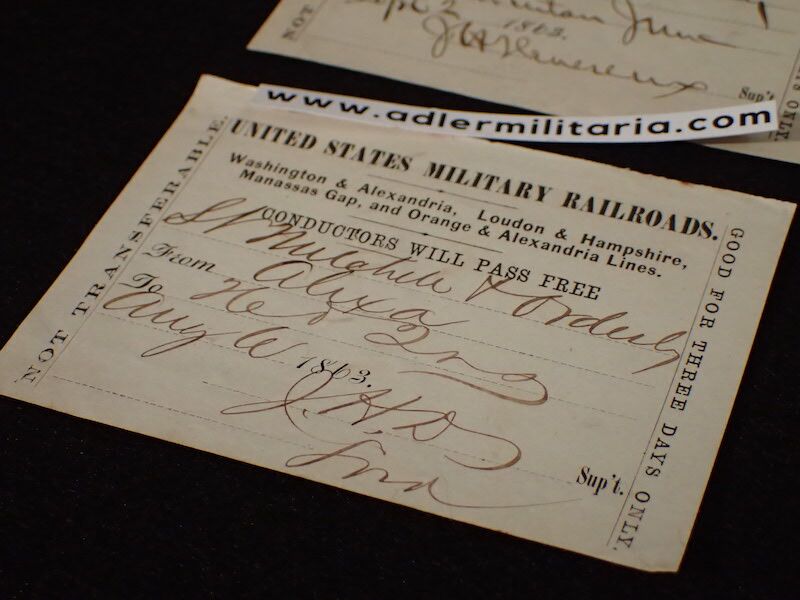 NOT
Sept 2
1863.
J H Devereux
Sup't.
DAYS ONLY.
www.adlermilitaria.com
UNITED STATES MILITARY RAILROADS.
Washington & Alexandria, Loudon & Hampshire,
Manassas Gap, and Orange & Alexandria Lines.
CONDUCTORS WILL PASS FREE
Lt Mitchell & Orderly
From Alexa
To
Aug 6 1863.
J.H.D
Sup't.
NOT TRANSFERABLE.
GOOD FOR THREE DAYS ONLY.